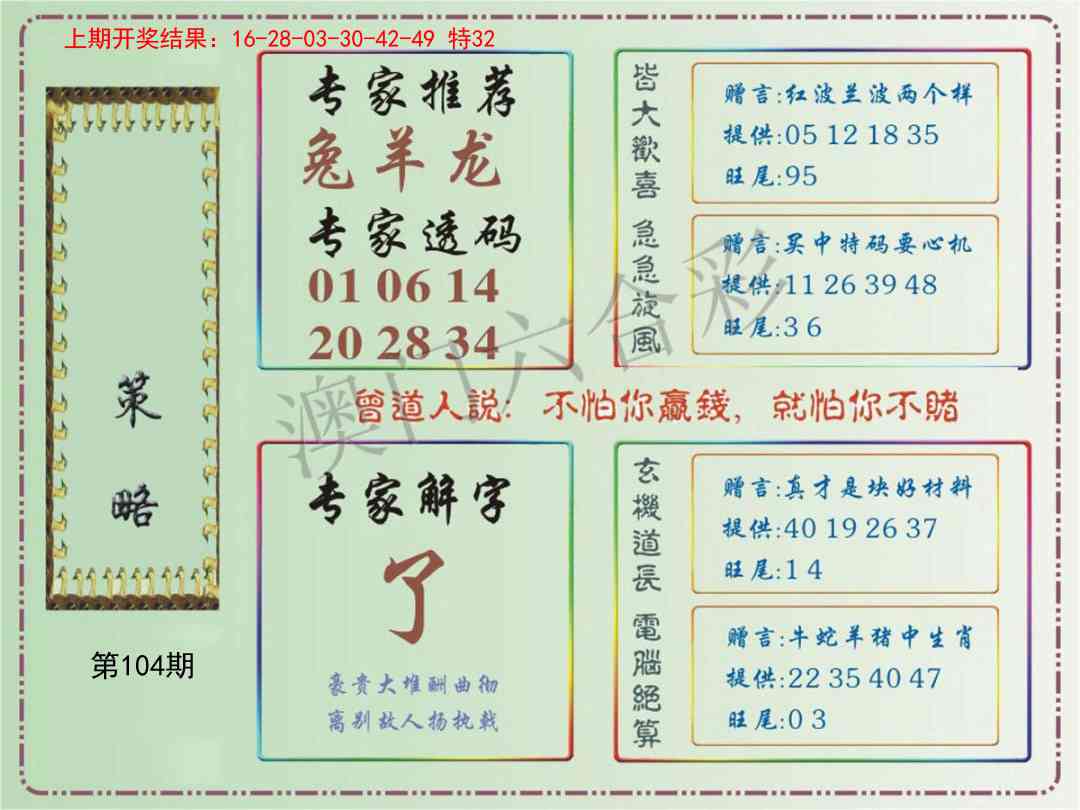 上期开奖结果：16-28-03-30-42-49 特32
策略
第104期
专家推荐
兔羊龙
专家透码
01 06 14
20 28 34
皆大歡喜
赠言:红波兰波两个样
提供:05 12 18 35
旺尾:95
急急旋風
赠言:买中特码要心机
提供:11 26 39 48
旺尾:3 6
曾道人説：不怕你贏錢，就怕你不賭
专家解字
了
豪贵大堆酬曲彻
离别故人扬执戟
玄機道長
赠言:真才是块好材料
提供:40 19 26 37
旺尾:1 4
電腦絕算
赠言:牛蛇羊猪中生肖
提供:22 35 40 47
旺尾:0 3
澳门六合彩